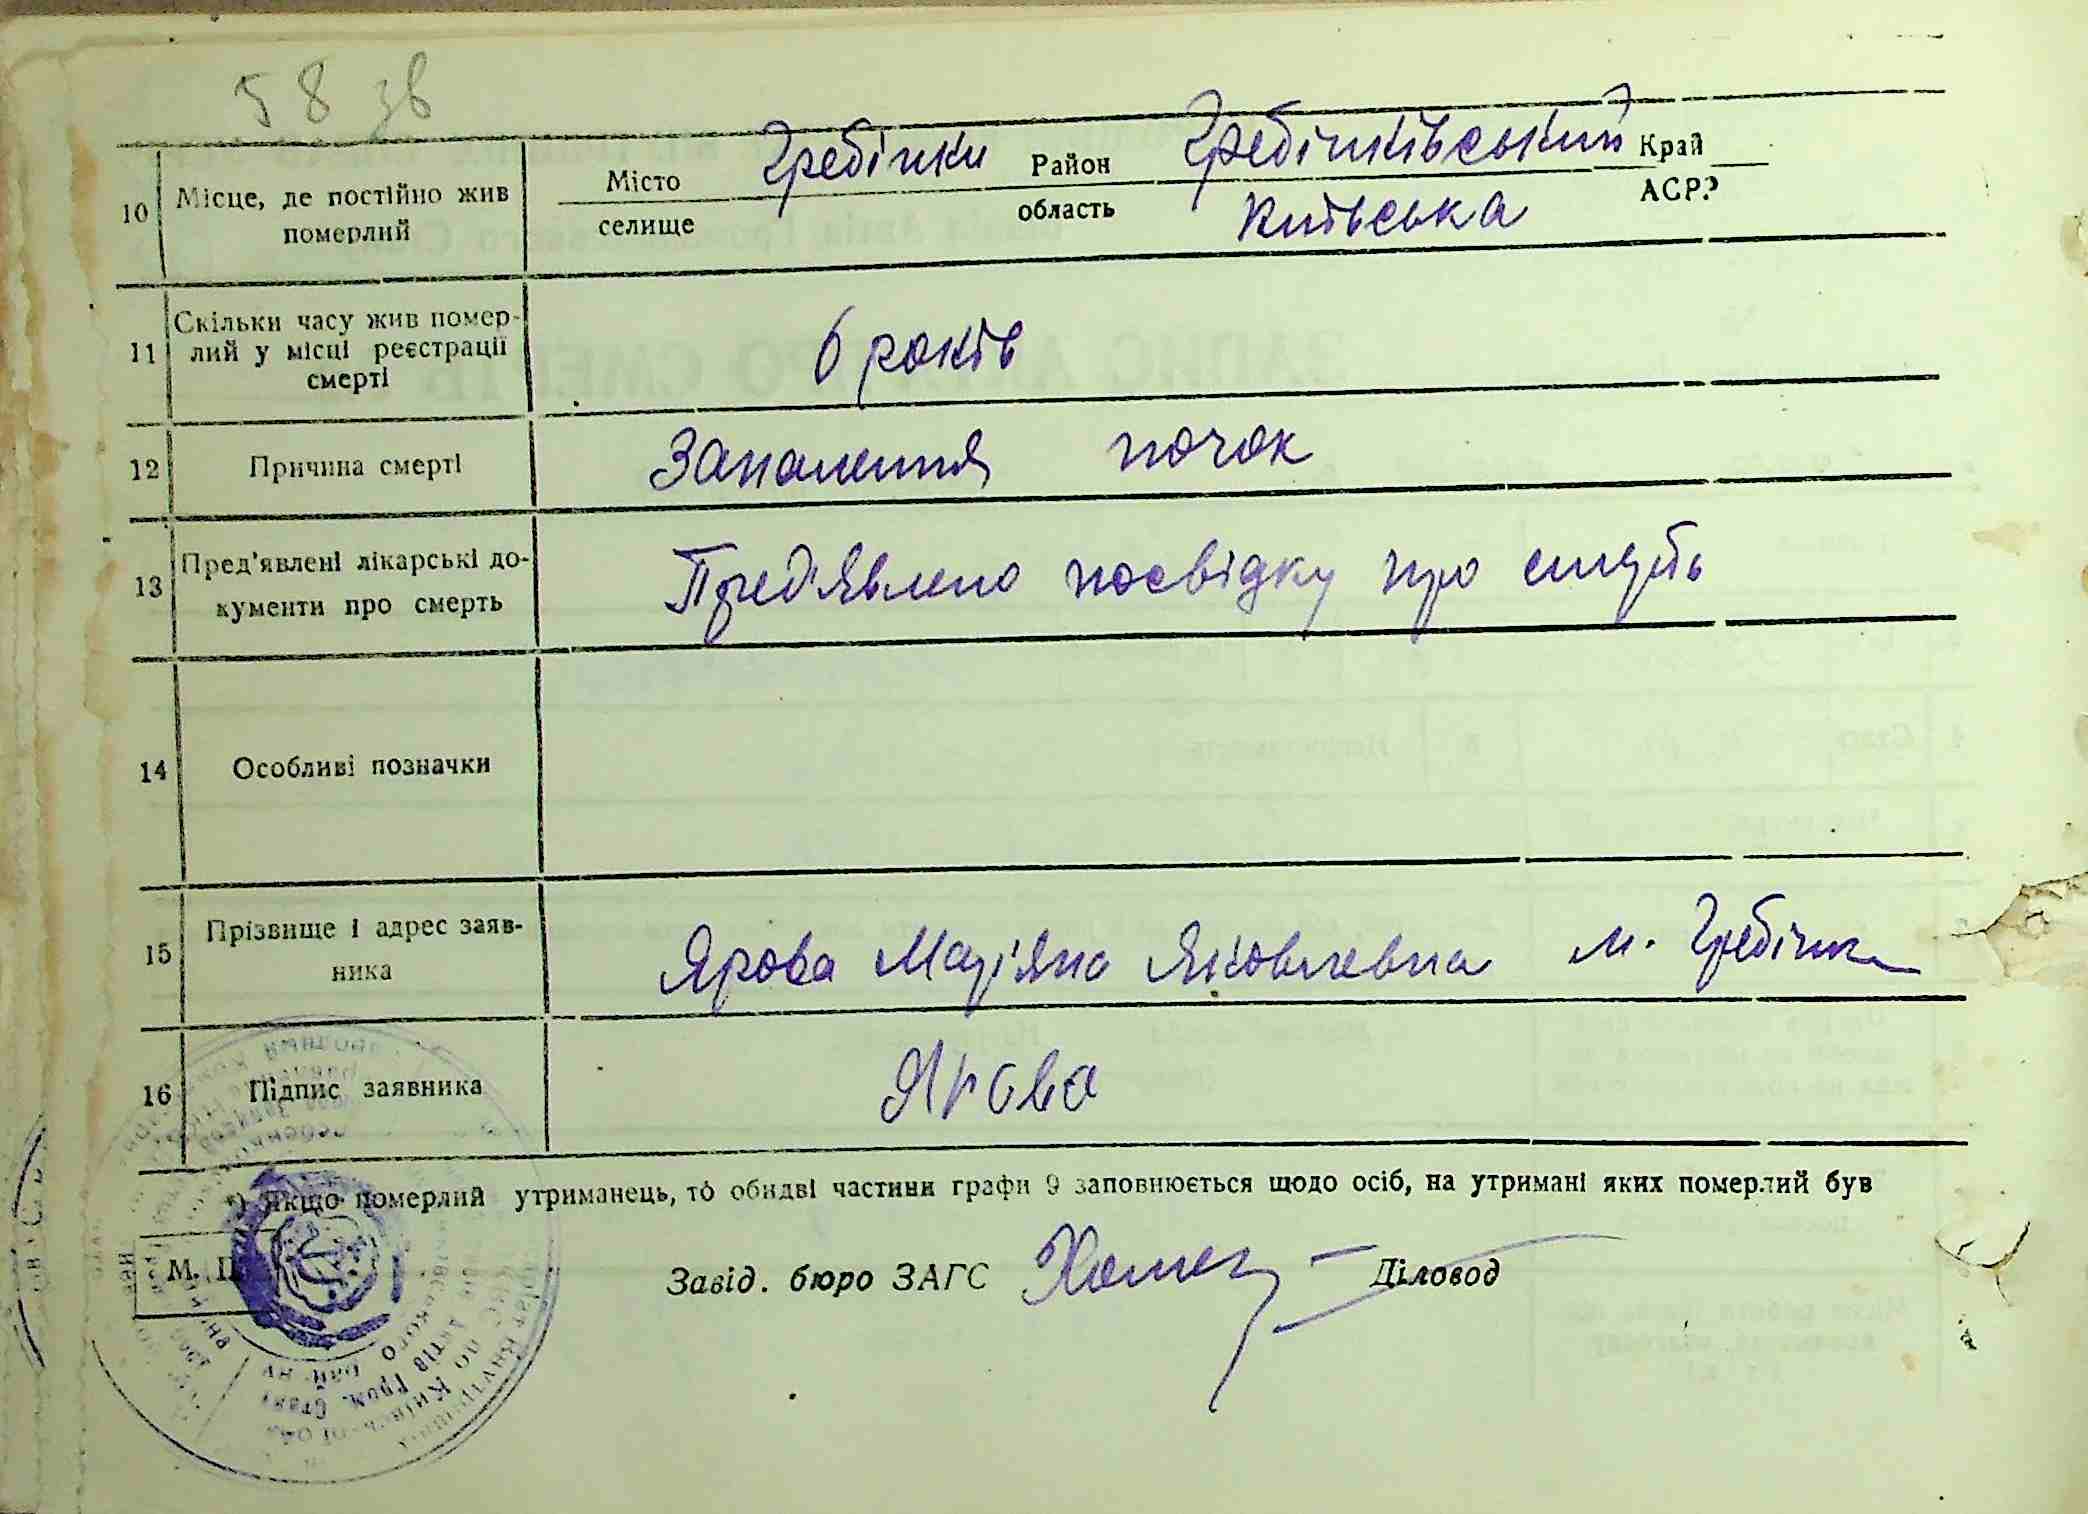 58 зв
10 Місце, де постійно жив померлий
Місто Гребінки Район Гребінківський Край
селище область Київська АСРР
11 Скільки часу жив помер-
лий у місці реєстрації
смерті
6 років
12 Причина смерті Запалення почок
13 Пред'явлені лікарські до-
кументи про смерть
Пред'явлено посвідку про смерть
14 Особливі позначки
15 Прізвище і адрес заяв-
ника
Ярова Маріяна Яковлевна м. Гребінки
16 Підпис заявника Ярова
*) Якщо померлий утриманець, то обидві частини графи 9 заповнюється щодо осіб, на утримані яких померлий був
М. П.
Завід. бюро ЗАГС Діловод